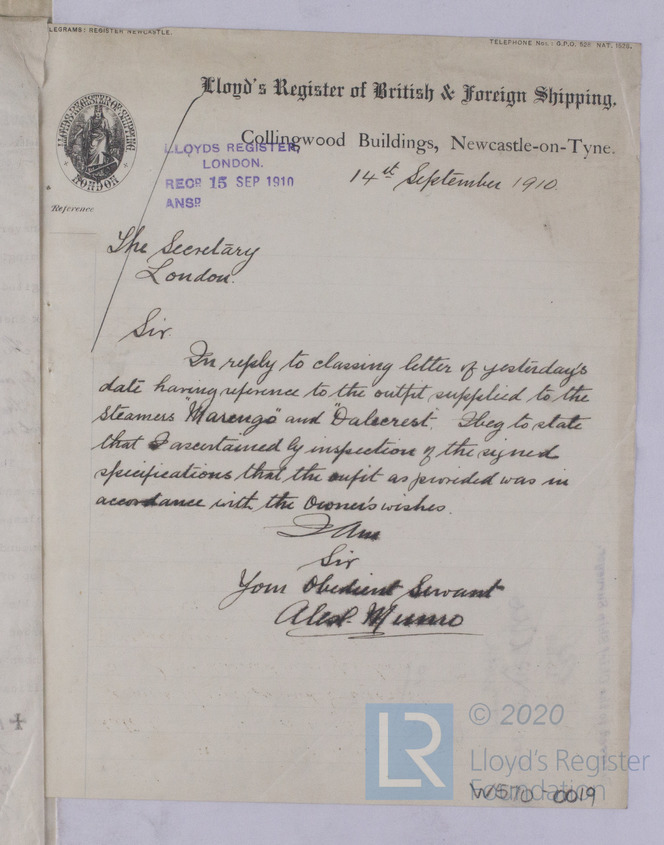 LEGRAMS: REGISTER NEWCASTLE.
TELEPHONE Nos.: G.P.O. 528 NAT. 1626.
Lloyd's Register of British & Foreign Shipping.
Collingwood Buildings, Newcastle-on-Tyne.
LLOYD'S REGISTER OF SHIPPING
LONDON
LLOYDS REGISTER,
LONDON.
RECD 15 SEP 1910
ANSD
14th September 1910.
Reference
The Secretary
London.
Sir.
In reply to classing letter of yesterday's
date having reference to the outfit supplied to the
steamers "Marengo" and "Dalecrest". I beg to state
that I ascertained by inspection of the signed
specifications that the oufit as provided was in
accordance with the Owner's wishes.
I Am
Sir
Your Obedient Servant
Alexr. Munro
LR
© 2020
Lloyd's Register
Foundation
W570-0019